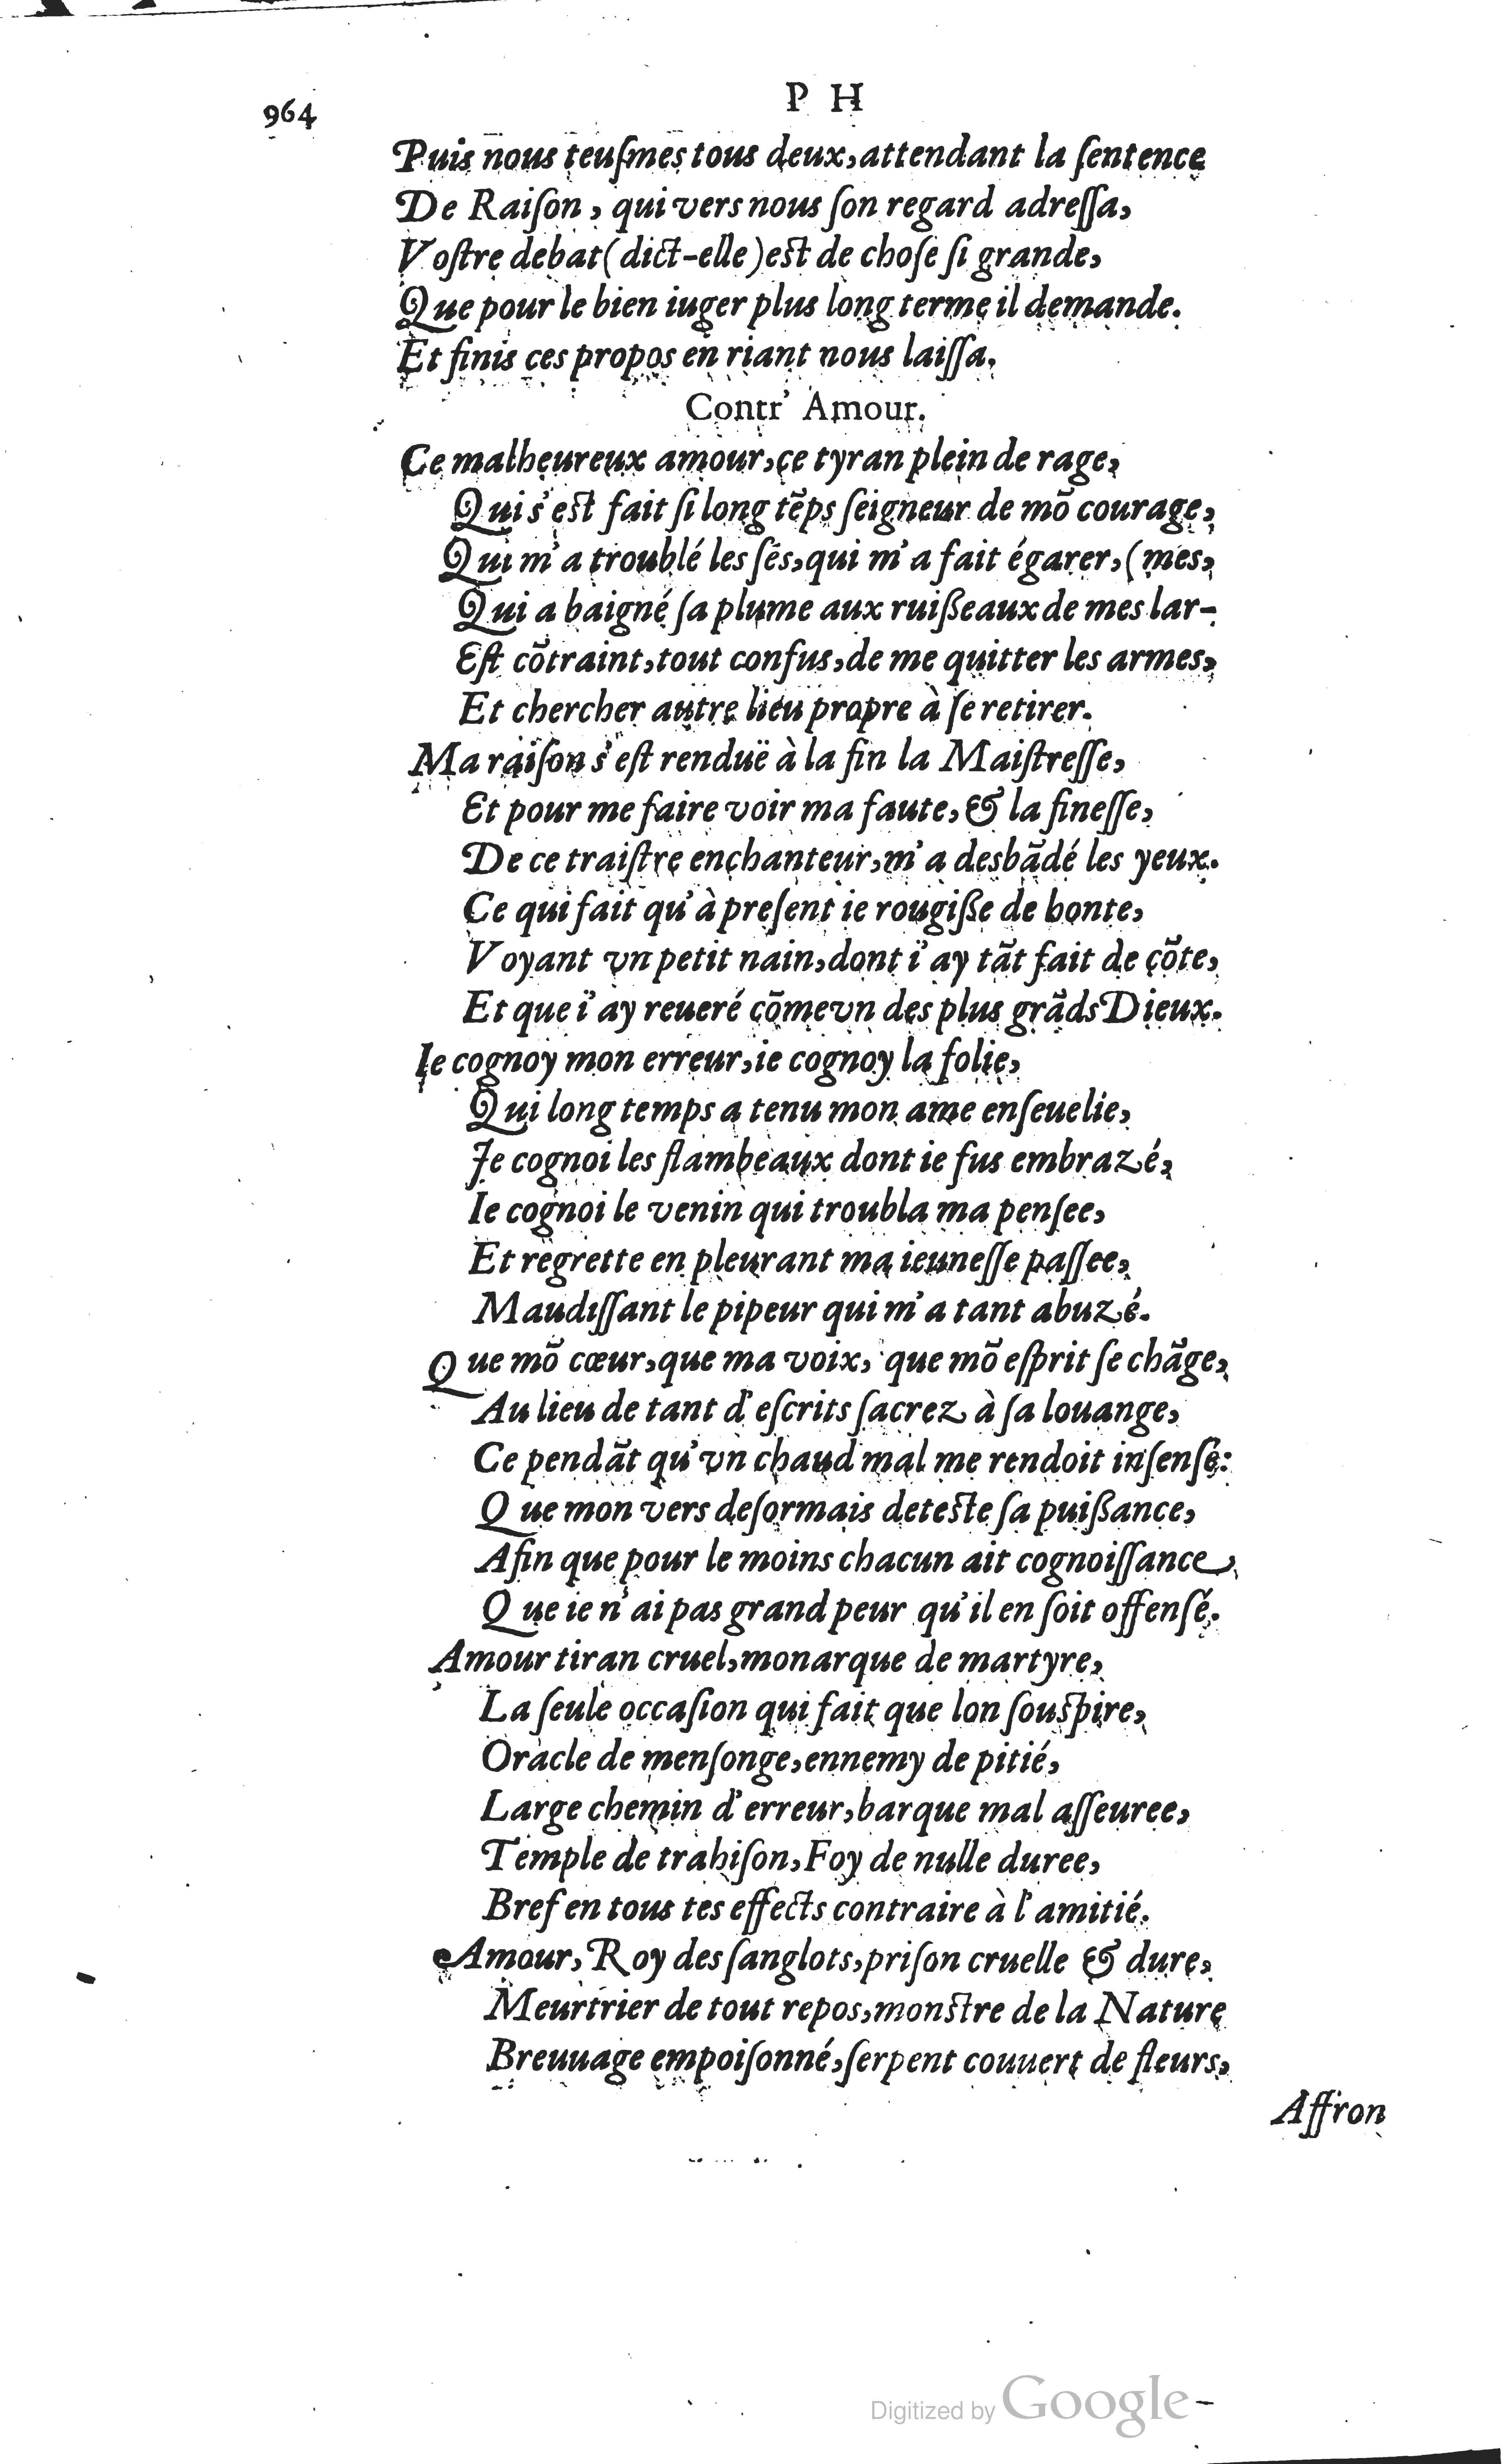 964
P H
Puis nous teuſmes tous deux, attendant la ſentence
De Raiſon, qui vers nous ſon regard adreſſa,
Voſtre debat (dict-elle) eſt de choſe ſi grande,
Que pour le bien iuger plus long terme il demande.
Et finis ces propos en riant nous laiſſa.
Contr' Amour.
Ce malheureux amour, ce tyran plein de rage,
Qui s'eſt fait ſi long tẽps ſeigneur de mõ courage,
Qui m'a troublé les ſés, qui m'a fait égarer, (mes,
Qui a baigné ſa plume aux ruißeaux de mes lar-
Eſt cõtraint, tout confus, de me quitter les armes,
Et chercher autre lieu propre à ſe retirer.
Ma raiſon s'eſt renduë à la fin la Maiſtreſſe,
Et pour me faire voir ma faute, & la fineſſe,
De ce traiſtre enchanteur, m'a desbãdé les yeux.
Ce qui fait qu'à preſent ie rougiße de honte,
Voyant vn petit nain, dont i'ay tãt fait de cõte,
Et que i'ay reueré cõme vn des plus grãds Dieux.
Ie cognoy mon erreur, ie cognoy la folie,
Qui long temps a tenu mon ame enſeuelie,
Je cognoi les flambeaux dont ie fus embrazé,
Ie cognoi le venin qui troubla ma penſee,
Et regrette en pleurant ma ieuneſſe paſſee,
Maudiſſant le pipeur qui m'a tant abuzé.
Que mõ cœur, que ma voix, que mõ eſprit ſe chãge,
Au lieu de tant d'eſcrits ſacrez à ſa louange,
Ce pendãt qu'vn chaud mal me rendoit inſenſé:
Que mon vers deſormais deteſte ſa puißance,
Afin que pour le moins chacun ait cognoiſſance,
Que ie n'ai pas grand peur qu'il en ſoit offenſé.
Amour tiran cruel, monarque de martyre,
La ſeule occaſion qui fait que lon ſouſpire,
Oracle de menſonge, ennemy de pitié,
Large chemin d'erreur, barque mal aſſeuree,
Temple de trahiſon, Foy de nulle duree,
Bref en tous tes effects contraire à l'amitié.
Amour, Roy des ſanglots, priſon cruelle & dure,
Meurtrier de tout repos, monſtre de la Nature
Breuuage empoiſonné, ſerpent couuert de fleurs,
Affron
Digitized by Google